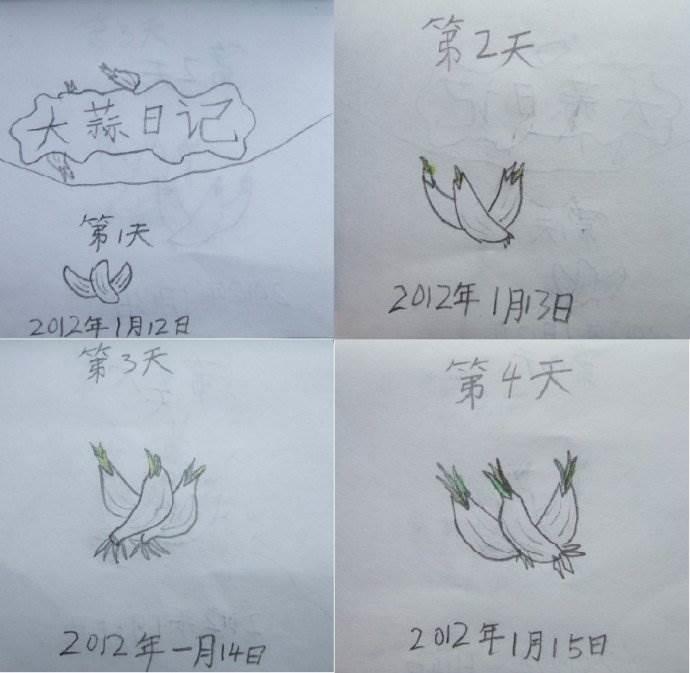 大蒜日记
第1天
2012年1月12日
第2天
2012年1月13日
第3天
2012年一月14日
第4天
2012年1月15日